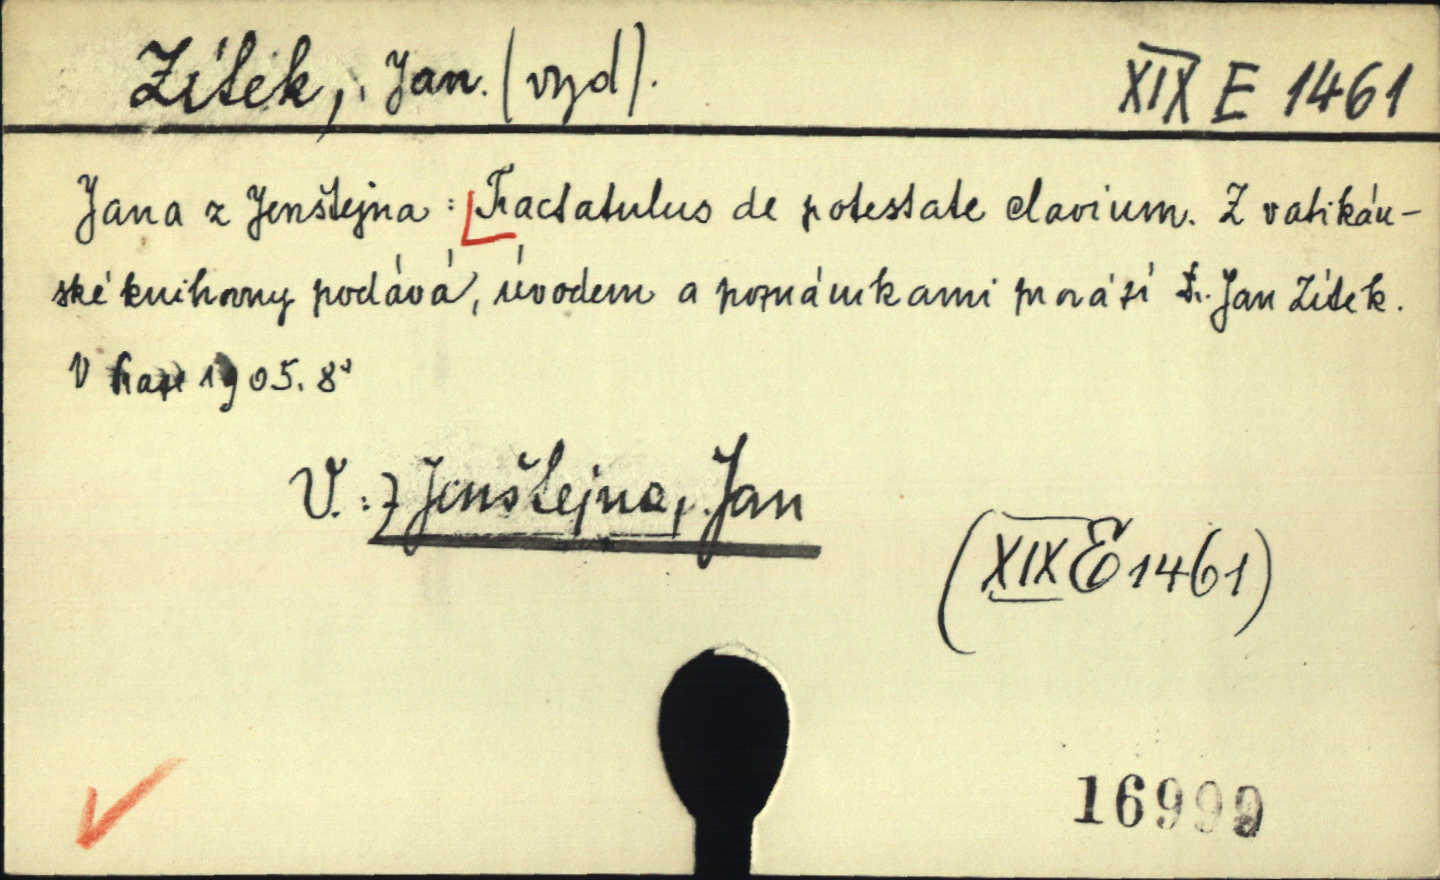 Zítek, Jan. (vyd). XIX E 1461
Jana z Jenštejna: Tractatulus de potestate clavium. Z vatikán-
ské knihovny podává, úvodem a poznámkami provází Dr. Jan Zítek.
V Praze 1905. 8°
V.: z Jenštejna, Jan
(XIX E 1461)
16999